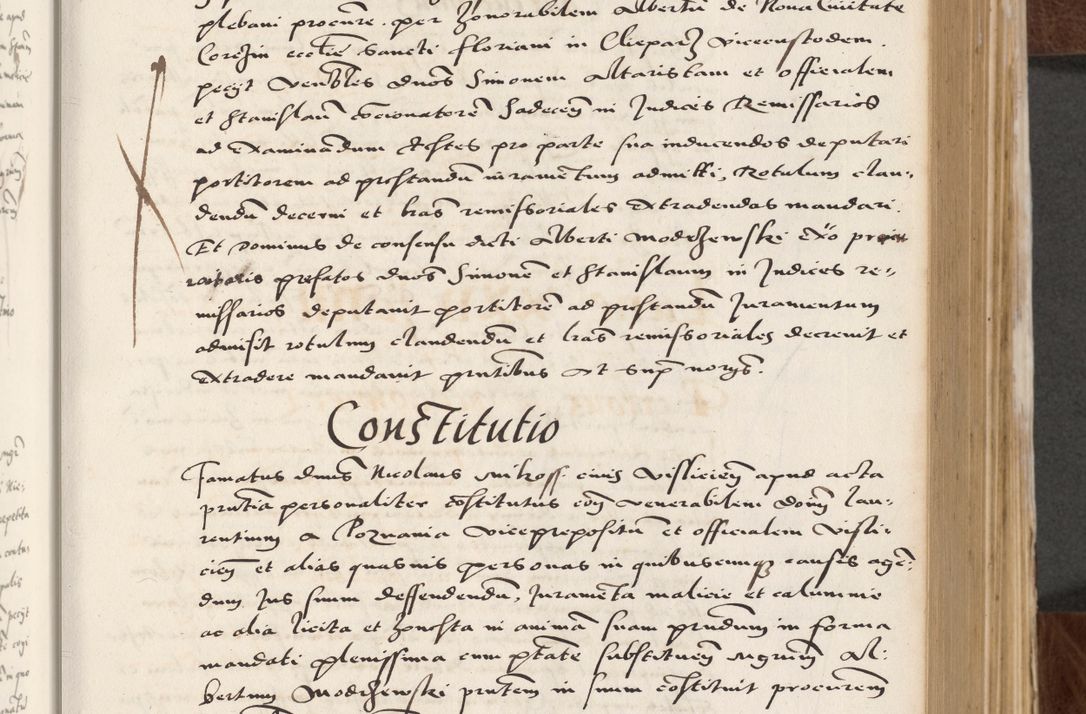 plebani procure. per honorabilem Albertū de Noua Ciuitate
Corēzin eccl̄ie Sancti Floriani in Clepardz vicecustodem.
pecijt venb̄les dnōs Simonem Altaristam et officialem
et Stanislaū cōcionatorē Sadecen̄ in Judices Remissarios
ad examinādum testes pro parte sua inducendos deputari
portitorem ad prestandū iuramētum admitti, Rotulum clau-
dendū decerni et lr̄as remissoriales extradendas mandari.
Et Dominus de consensu dicti Alberti Modrzewski
prefatos dnōs Simonē et Stanislaum in Judices re-
missarios deputauit portitorē ad prestandū Juramentum
admisit rotulum claudendū et lr̄as remissoriales decreuit et
extradere mandauit pn̄tibus vt supr̄
Constitutio
Famatus dnūs Nicolaus ciuis Vislicien̄ apud acta
pn̄tia personaliter cōstitutus cōn̄ venerabilem Dom̄ Lau-
rentium a Poznania vicepreposito et officialem Visli-
cien̄ et alias quasuis personas in quibuscunq̄ causis agēn-
dum Jus suum deffendendū, Juramēta malicie et calumnie
ac alia licita et honesta in animā suam prn̄dum in forma
mandati plenissima cum pt̄ate substituen̄ Al-
bertum Modrzewski pn̄tem in suum cōstituit procurem̄